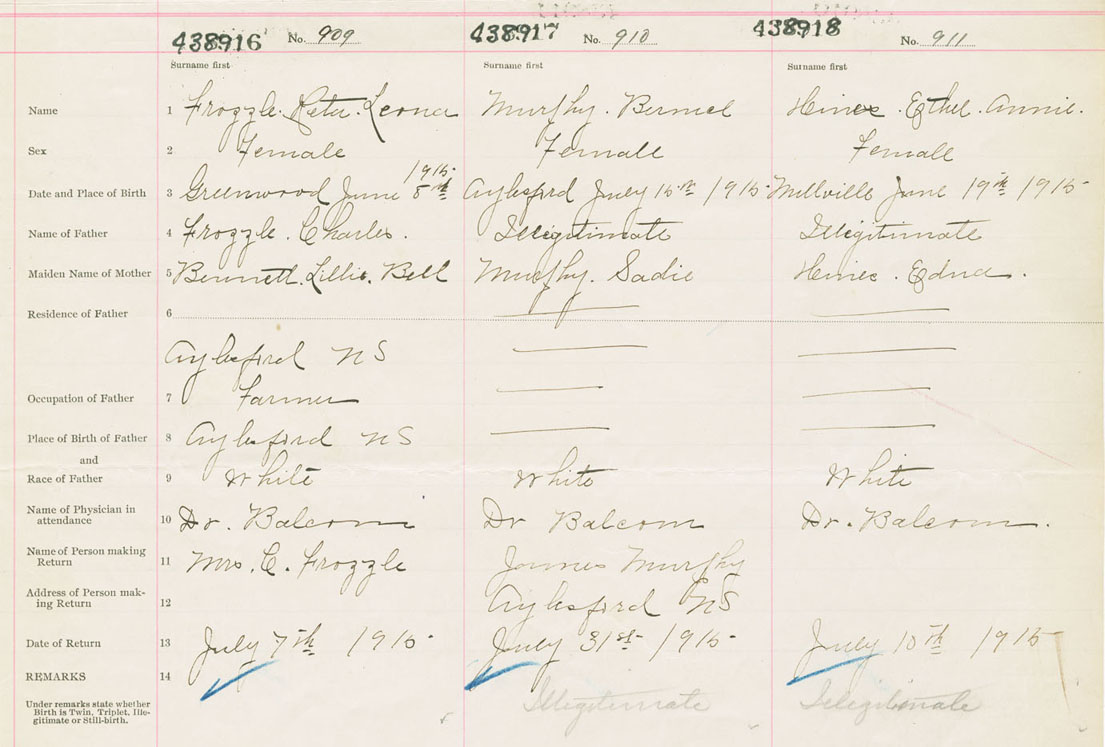 438916 No. 909 438917 No. 910 438918 No. 911
Surname first Surname first Surname first
Name 1 Frozzle. Reta. Leona Murphy. Bernel Hines. Ethel. Annie.
Sex 2 Female Female Female
1915
Date and Place of Birth 3 Greenwood June 8th Aylesford July 15th 1915 Millville June 19th 1915
Name of Father 4 Frozzle. Charles. Illegitimate Illegitimate
Maiden Name of Mother 5 Bennett. Lillie. Bell Murphy. Sadie Hines. Edna.
Residence of Father 6
Aylesford NS
Occupation of Father 7 Farmer
Place of Birth of Father 8 Aylesford NS
and
Race of Father 9 White White White
Name of Physician in
attendance 10 Dr. Balcom Dr Balcom Dr. Balcom.
Name of Person making
Return 11 Mrs. C. Frozzle James Murphy
Address of Person mak-
ing Return 12 Aylesford NS
Date of Return 13 July 7th 1915 July 31st 1915 July 10th 1915
REMARKS 14
Under remarks state whether
Birth is Twin, Triplet, Ille-
gitimate or Still-birth.
Illegitimate Illegitimate